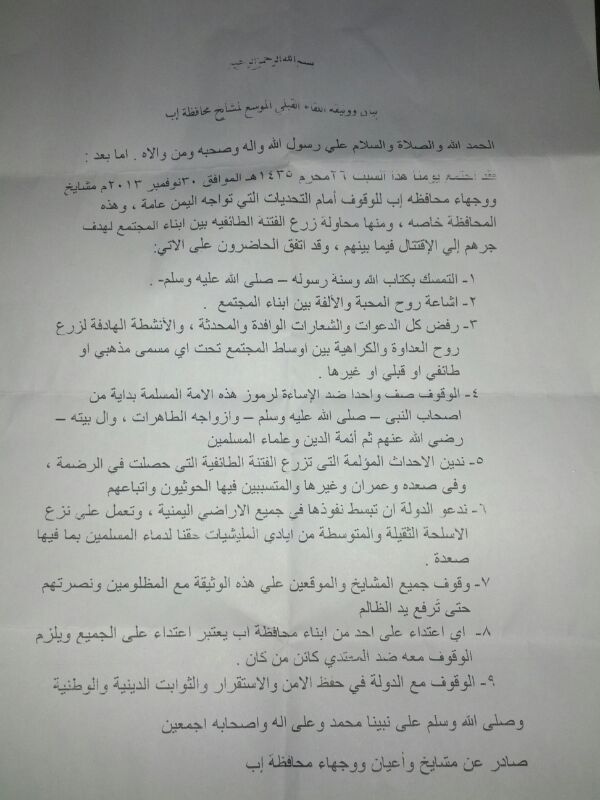 بسم الله الرحمن الرحيم
بيان ووثيقة اللقاء القبلي الموسع لمشايخ محافظة إب
الحمد الله والصلاة والسلام علي رسول الله واله وصحبه ومن والاه . اما بعد :
فقد اجتمع يومنا هذا السبت ٢٦محرم ١٤٣٥هـ الموافق ٣٠نوفمبر ٢٠١٣م مشايخ
ووجهاء محافظه إب للوقوف أمام التحديات التي تواجه اليمن عامة ، وهذه
المحافظة خاصه ، ومنها محاولة زرع الفتنة الطائفيه بين ابناء المجتمع لهدف
جرهم إلي الإقتتال فيما بينهم ، وقد اتفق الحاضرون على الاتي:
١- التمسك بكتاب الله وسنة رسوله – صلى الله عليه وسلم- .
٢- اشاعة روح المحبة والألفة بين ابناء المجتمع .
٣- رفض كل الدعوات والشعارات الوافدة والمحدثة ، والأنشطة الهادفة لزرع
روح العداوة والكراهية بين اوساط المجتمع تحت اي مسمى مذهبي او
طائفي او قبلي او غيرها .
٤- الوقوف صف واحدا ضد الإساءة لرموز هذه الامة المسلمة بداية من
اصحاب النبى – صلى الله عليه وسلم – وازواجه الطاهرات ، وال بيته –
رضي الله عنهم ثم أئمة الدين وعلماء المسلمين
٥- ندين الاحداث المؤلمة التى تزرع الفتنة الطائفية التي حصلت في الرضمة ،
وفى صعده وعمران وغيرها والمتسببين فيها الحوثيون واتباعهم
٦- ندعو الدولة ان تبسط نفوذها في جميع الاراضي اليمنية ، وتعمل علي نزع
الاسلحة الثقيلة والمتوسطة من ايادي المليشيات حقنا لدماء المسلمين بما فيها
صعدة .
٧- وقوف جميع المشايخ والموقعين علي هذه الوثيقة مع المظلومين ونصرتهم
حتى تَرفع يد الظالم
٨- اي اعتداء على احد من ابناء محافظة اب يعتبر اعتداء على الجميع ويلزم
الوقوف معه ضد المعتدي كائن من كان .
٩- الوقوف مع الدولة في حفظ الامن والاستقرار والثوابت الدينية والوطنية
وصلى الله وسلم على نبينا محمد وعلى اله واصحابه اجمعين
صادر عن مشايخ وأعيان ووجهاء محافظة إب